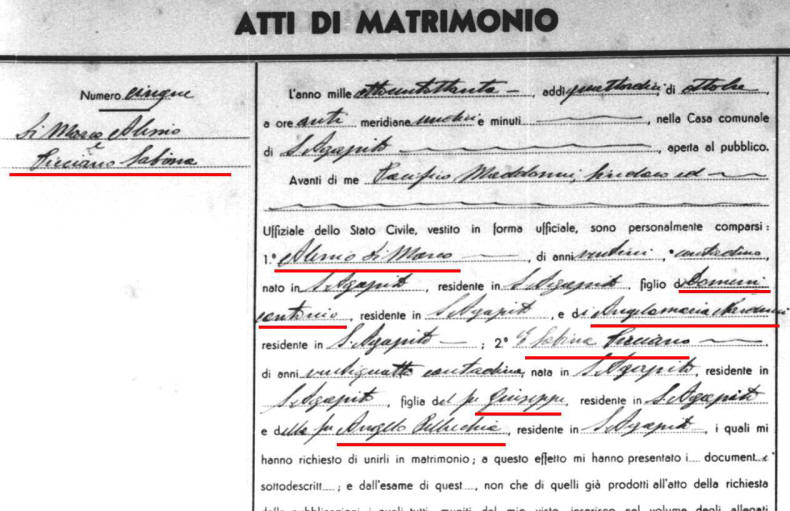 ATTI DI MATRIMONIO
Numero cinque
Di Marco Alesio
e
Picciano Sabina
L'anno mille ottocentottanta, addì quattordici di ottobre
a ore anti meridiane undici e minuti , nella Casa comunale
di S. Agapito , aperta al pubblico.
Avanti di me Pacifico Maddonni, sindaco ed
Uffiziale dello Stato Civile, vestito in forma ufficiale, sono personalmente comparsi :
1.° Alesio Di Marco , di anni , contadino,
nato in S. Agapito , residente in S. Agapito , figlio di Domeni
cantonio , residente in S. Agapito , e di Angelamaria
residente in S. Agapito ; 2° Sabina Picciano
di anni ventiquattro contadina, nata in S. Agapito, residente in
S. Agapito , figlia del fu Giuseppe, residente in S. Agapito
e della fu Angela Pellecchia, residente in S. Agapito , i quali mi
hanno richiesto di unirli in matrimonio ; a questo effetto mi hanno presentato i.... document..e
sottodescritt.... ; e dall'esame di quest...., non che di quelli già prodotti all'atto della richiesta
delle pubblicazioni, i quali tutti, muniti del mio visto, inserisco nel volume degli allegati